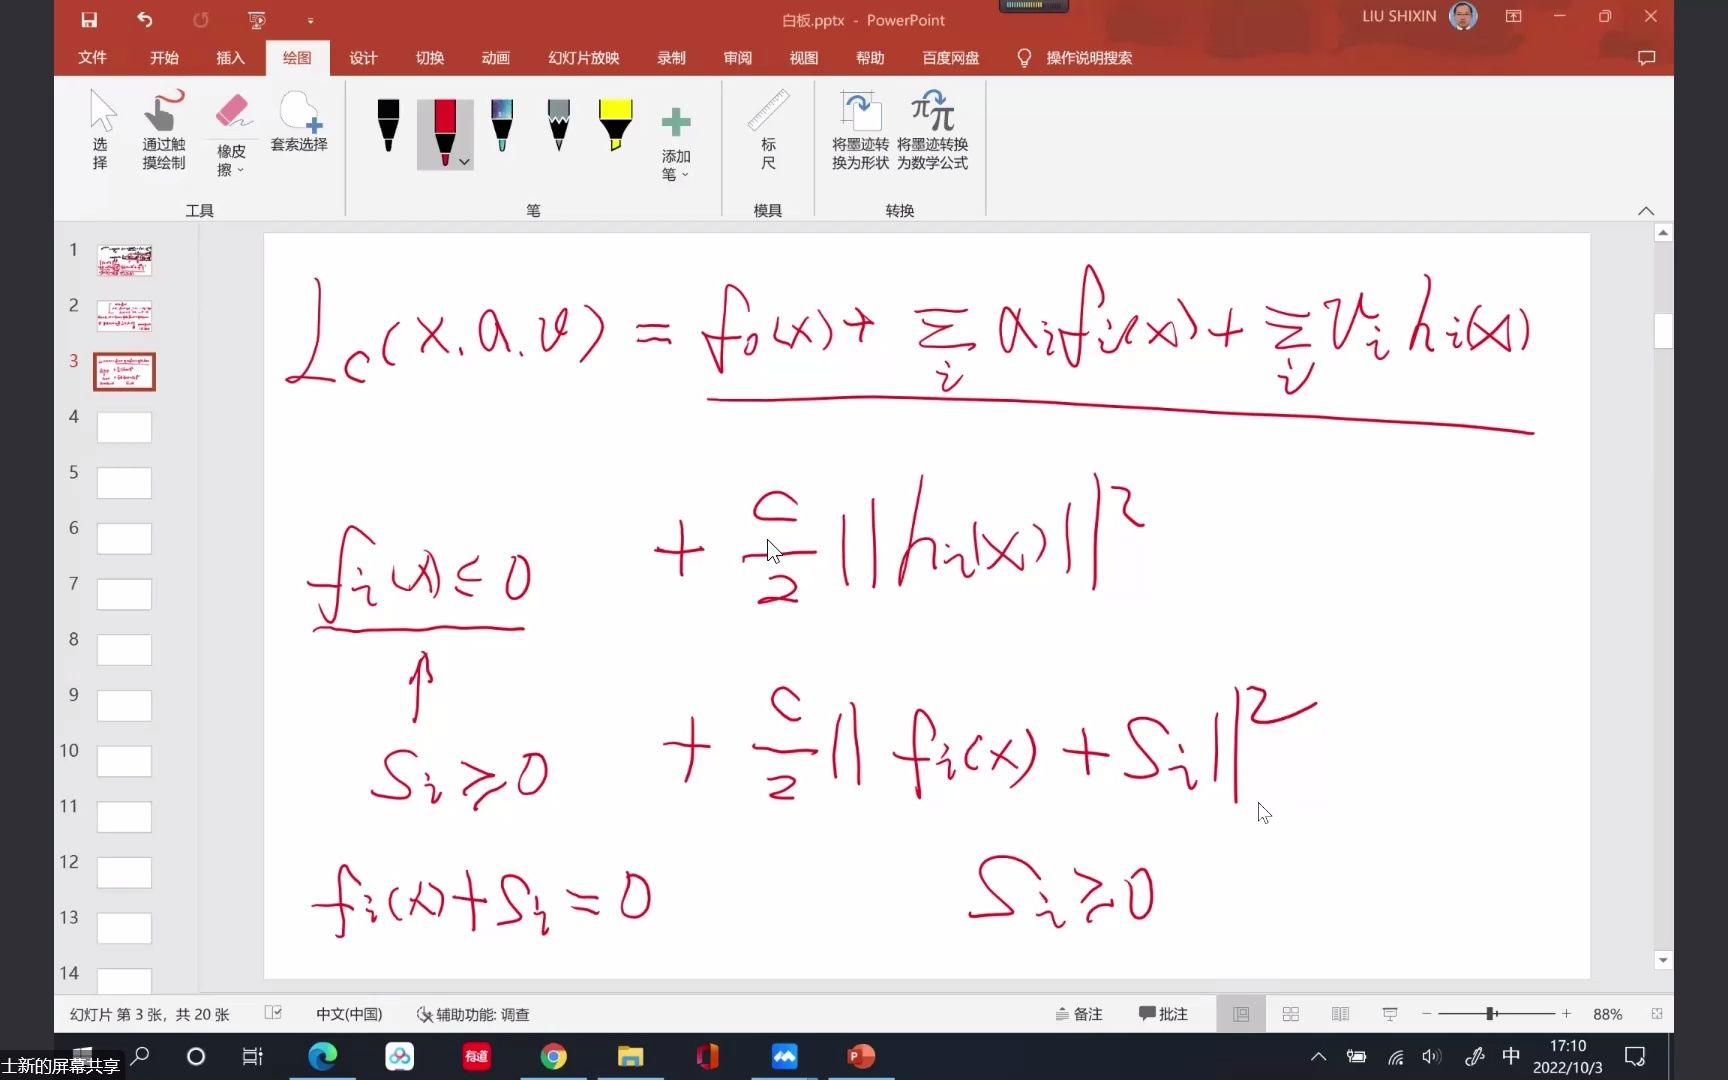 白板.pptx - PowerPoint
LIU SHIXIN
文件 开始 插入 绘图 设计 切换 动画 幻灯片放映 录制 审阅 视图 帮助 百度网盘 操作说明搜索
选择
通过触摸绘制
橡皮擦
套索选择
添加笔
标尺
将墨迹转换为形状
将墨迹转换为数学公式
工具 笔 模具 转换
1
2
3
4
5
6
7
8
9
10
11
12
13
14
L_c(x, a, v) = f_0(x) + Σ_i a_i f_i(x) + Σ_i v_i h_i(x)
+ c/2 ||h_i(x)||²
f_i(x) ≤ 0
↑
S_i ≥ 0
+ c/2 || f_i(x) + S_i ||²
f_i(x) + S_i = 0
S_i ≥ 0
幻灯片 第 3 张，共 20 张 中文(中国) 辅助功能: 调查 备注 批注 88%
士新的屏幕共享
有道
中
17:10
2022/10/3